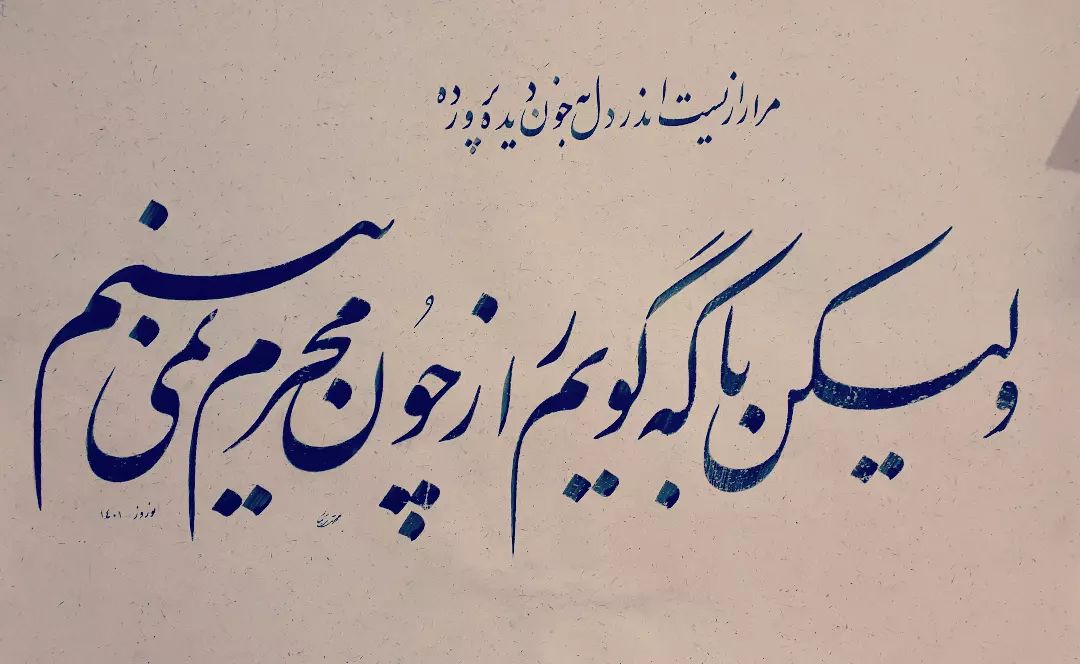 مرا رازیست اندر دل به خون دیده پرورده
ولیکن با که گویم راز چون محرم نمی بینم
نوروز ۱۴۰۱